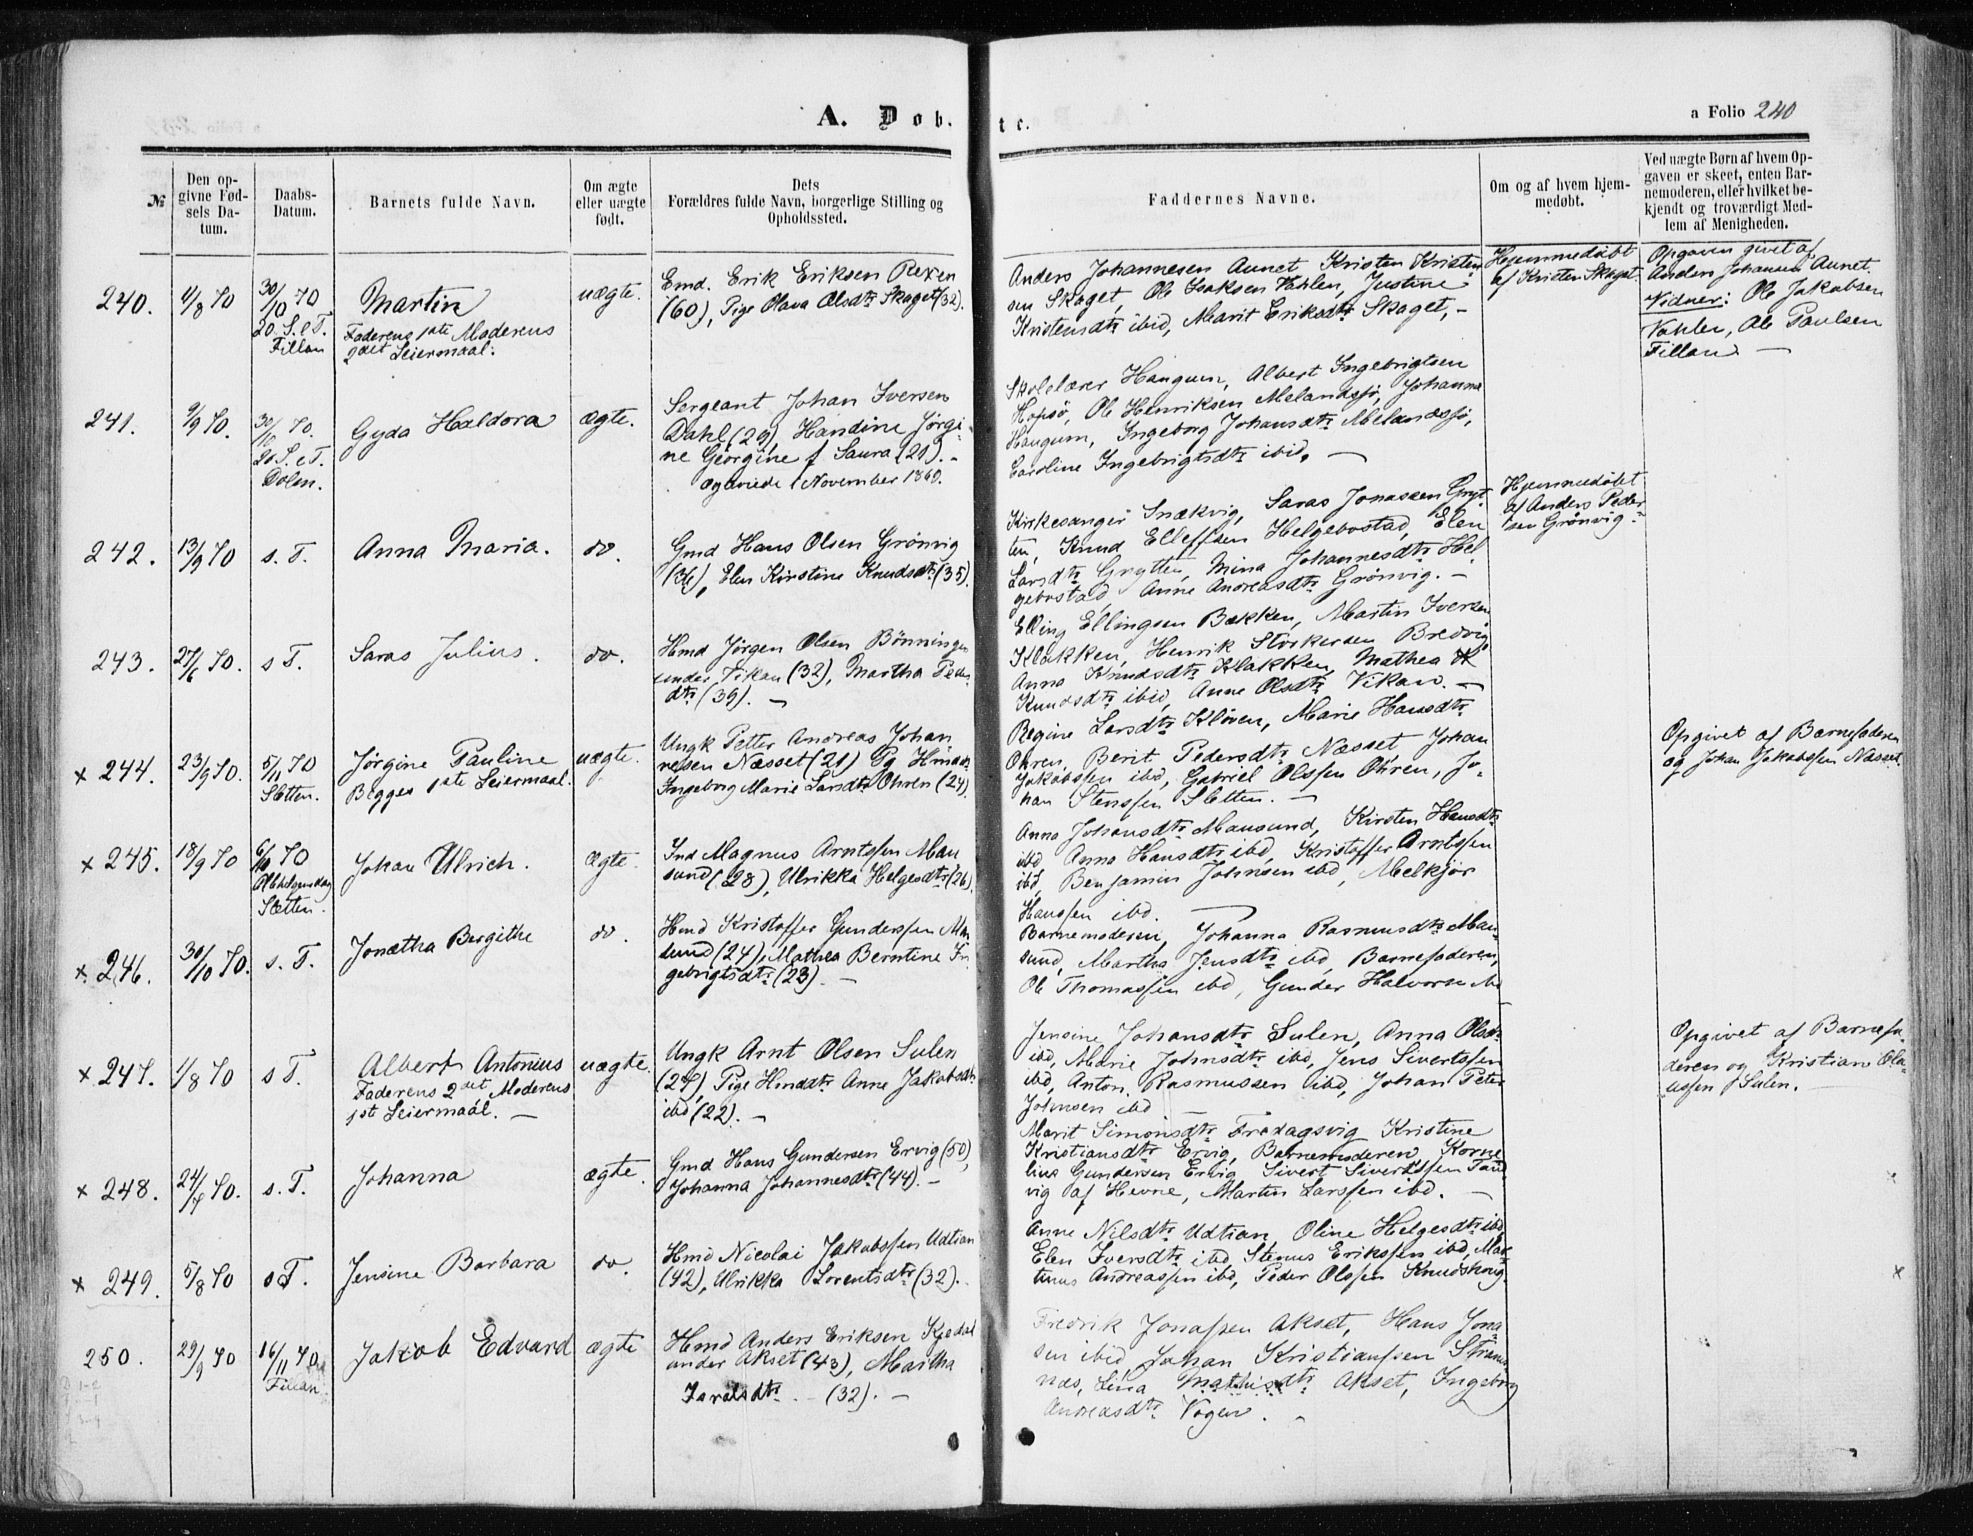 A. Døb.
te.
a Folio 240
№
Den opgivne Fødsels Datum.
Daabs-Datum.
Barnets fulde Navn.
Om ægte eller uægte født.
Dets Forældres fulde Navn, borgerlige Stilling og Opholdssted.
Faddernes Navne.
Om og af hvem hjemmedøbt.
Ved uægte Børn af hvem Opgaven er skeet, enten Barnemoderen, eller hvilket bekjendt og troværdigt Medlem af Menigheden.
240.
1/8 70
30/10 70
20. S. e T.
Fillan
Martin
Faderens 1ste Moderens
2det Leiermaal.
uægte.
Emd. Erik Eriksen Rexen
(60), Pige Olava Olsdtr Skaget (32).
Anders Johannesen Aunet Kristen Kristen
sen Skaget, Ole Isaksen Vahlen, Justine
Kristensdtr ibid, Marit Eriksdtr Skaget, -
Hjemmedøbt
af Kristen Skaget.
Opgaven givet af
Anders Johansen Aunet.
Vidner: Ole Jakobsen
Vahlen, Ole Paulsen
Fillan. —
241.
9/9 70.
30/10 70.
20 S. e T.
Dolm.
Gyda Haldora
ægte.
Sergeant Johan Iversen
Dahl (29), Handine Jørgi-
ne Georgine f Saura (20). -
ægteviede 1 November 1869.
Skolelærer Haugum, Albert Ingebrigtsen
Hopsø, Ole Henriksen Melandsjø, Johanna
Haugum, Ingeborg Johansdtr Melandsjø,
Caroline Ingebrigtsdtr ibid. —
242.
13/9 70
s. T.
Anna Maria.
do.
Gmd Hans Olsen Grønvig
(36), Elen Kirstine Knudsdtr (35).
Kirkesanger Snækvig, Saras Jonassen Gryt
ten, Knud Elleffsen Helgebostad, Elen
Larsdtr Grytten, Mina Johannesdtr Hel
gebostad, Anne Andreasdtr Grønvig. -
Hjemmedøbt
af Anders Peder
sen Grønvig.
243.
27/6 70.
s T.
Saras Julius.
do.
Hmd Jørgen Olsen Bønningen
under Vikan (32), Martha Peders
dtr (39). —
Elling Ellingsen Bækken, Martin Iversen
Klakken, Henrik Storkersen Bredvig
Anna Knudsdtr Klakken, Mathea
Knudsdtr ibid, Anne Olsdtr Vikan. —
x 244.
23/9 70.
5/11 70
Sletten.
Jørgine Pauline
Begges 1ste Leiermaal.
uægte.
Ungk Petter Andreas Johan
nesen Næsset (21) Pg Hmdsdtr
Ingeborg Marie Larsdtr Ohren (24).
Regine Larsdtr Kløven, Marie Hansdtr
Ohren, Berit Pedersdtr Næsset, Johan
Jakobssen ibid, Gabriel Olssen Ohren, Jo-
han Stenssen Sletten. —
Opgivet af Barnefaderen
og Johan Jakobssen Næsset.
x 245.
18/9 70
6/11 70
Allehelgensdag
Sletten.
Johan Ulrich.
Ægte.
Ind Magnus Arntssen Mau
sund (28), Ulrikka Helgesdtr (26).
Anna Johansdtr Mausund, Kirsten Hansdtr
ibd Anna Hansdtr ibd, Kristoffer Arntssen
ibd, Benjamin Johnsen ibd, Melkjør
Hanssen ibd. —
x 246.
30/10 70.
s. T.
Jonætha Bergithe
do.
Hmd Kristoffer Gunderssen Mau
sund (24), Mathea Berntine In
gebrigtsdtr (23). —
Barnemoderen, Johanna Rasmusdtr Mau-
sund, Martha Jensdtr ibd, Barnefaderen,
Ole Thomassen ibd, Gunder Halvorsen ibd
x 247.
1/8 70
s T.
Albert Antonius
Faderens 2det Moderens
1st Leiermaal. —
uægte.
Ungk Arnt Olsen Sulen
(27), Pige Hmdsdtr Anne Jakobsdtr
ibd (22). —
Jensine Johansdtr Sulen, Anna Olsdtr
ibd, Marie Johnsdtr ibd, Jens Sivertssen
ibd, Anton Rasmussen ibd, Johan Peter
Johnsen ibd —
Opgivet af Barnefa-
deren og Kristian Ola-
ussen Sulen. —
x 248.
24/7 70.
s. T.
Johanna
ægte.
Gmd Hans Gundersen Ervig (50),
Johanna Johannesdtr (44). -
Marit Simonsdtr Fredagsvig Kristine
Kristiansdtr Ervig, Barnemoderen, Korne
lius Gundersen Ervig Sivert Sivertssen Tand
vig af Hevne, Martin Larssen ibd. —
x 249.
5/8 70
s T.
Jensine Barbara
do.
Hmd Nicolai Jakobssen Udtian
(42), Ulrikka Lorentsdtr (32). -
Anne Nilsdtr Udtian, Oline Helgesdtr ibd,
Elen Iversdtr ibd, Stenus Erikssen ibd, Mar-
tinus Andreassen ibd, Peder Olssen Knudshoug.
x
250.
29/9 70
16/11 70
Fillan.
Jakob Edvard
ægte
Hmd Anders Eriksen Kjedal
under Akset (43), Martha
Iversdtr - (32). —
Fredrik Jonassen Akset, Hans Jona
sen ibid, Johan Kristianssen Strøm
næs, Lina Mathisdtr Akset, Ingeborg
Andreasdtr Vogen. -